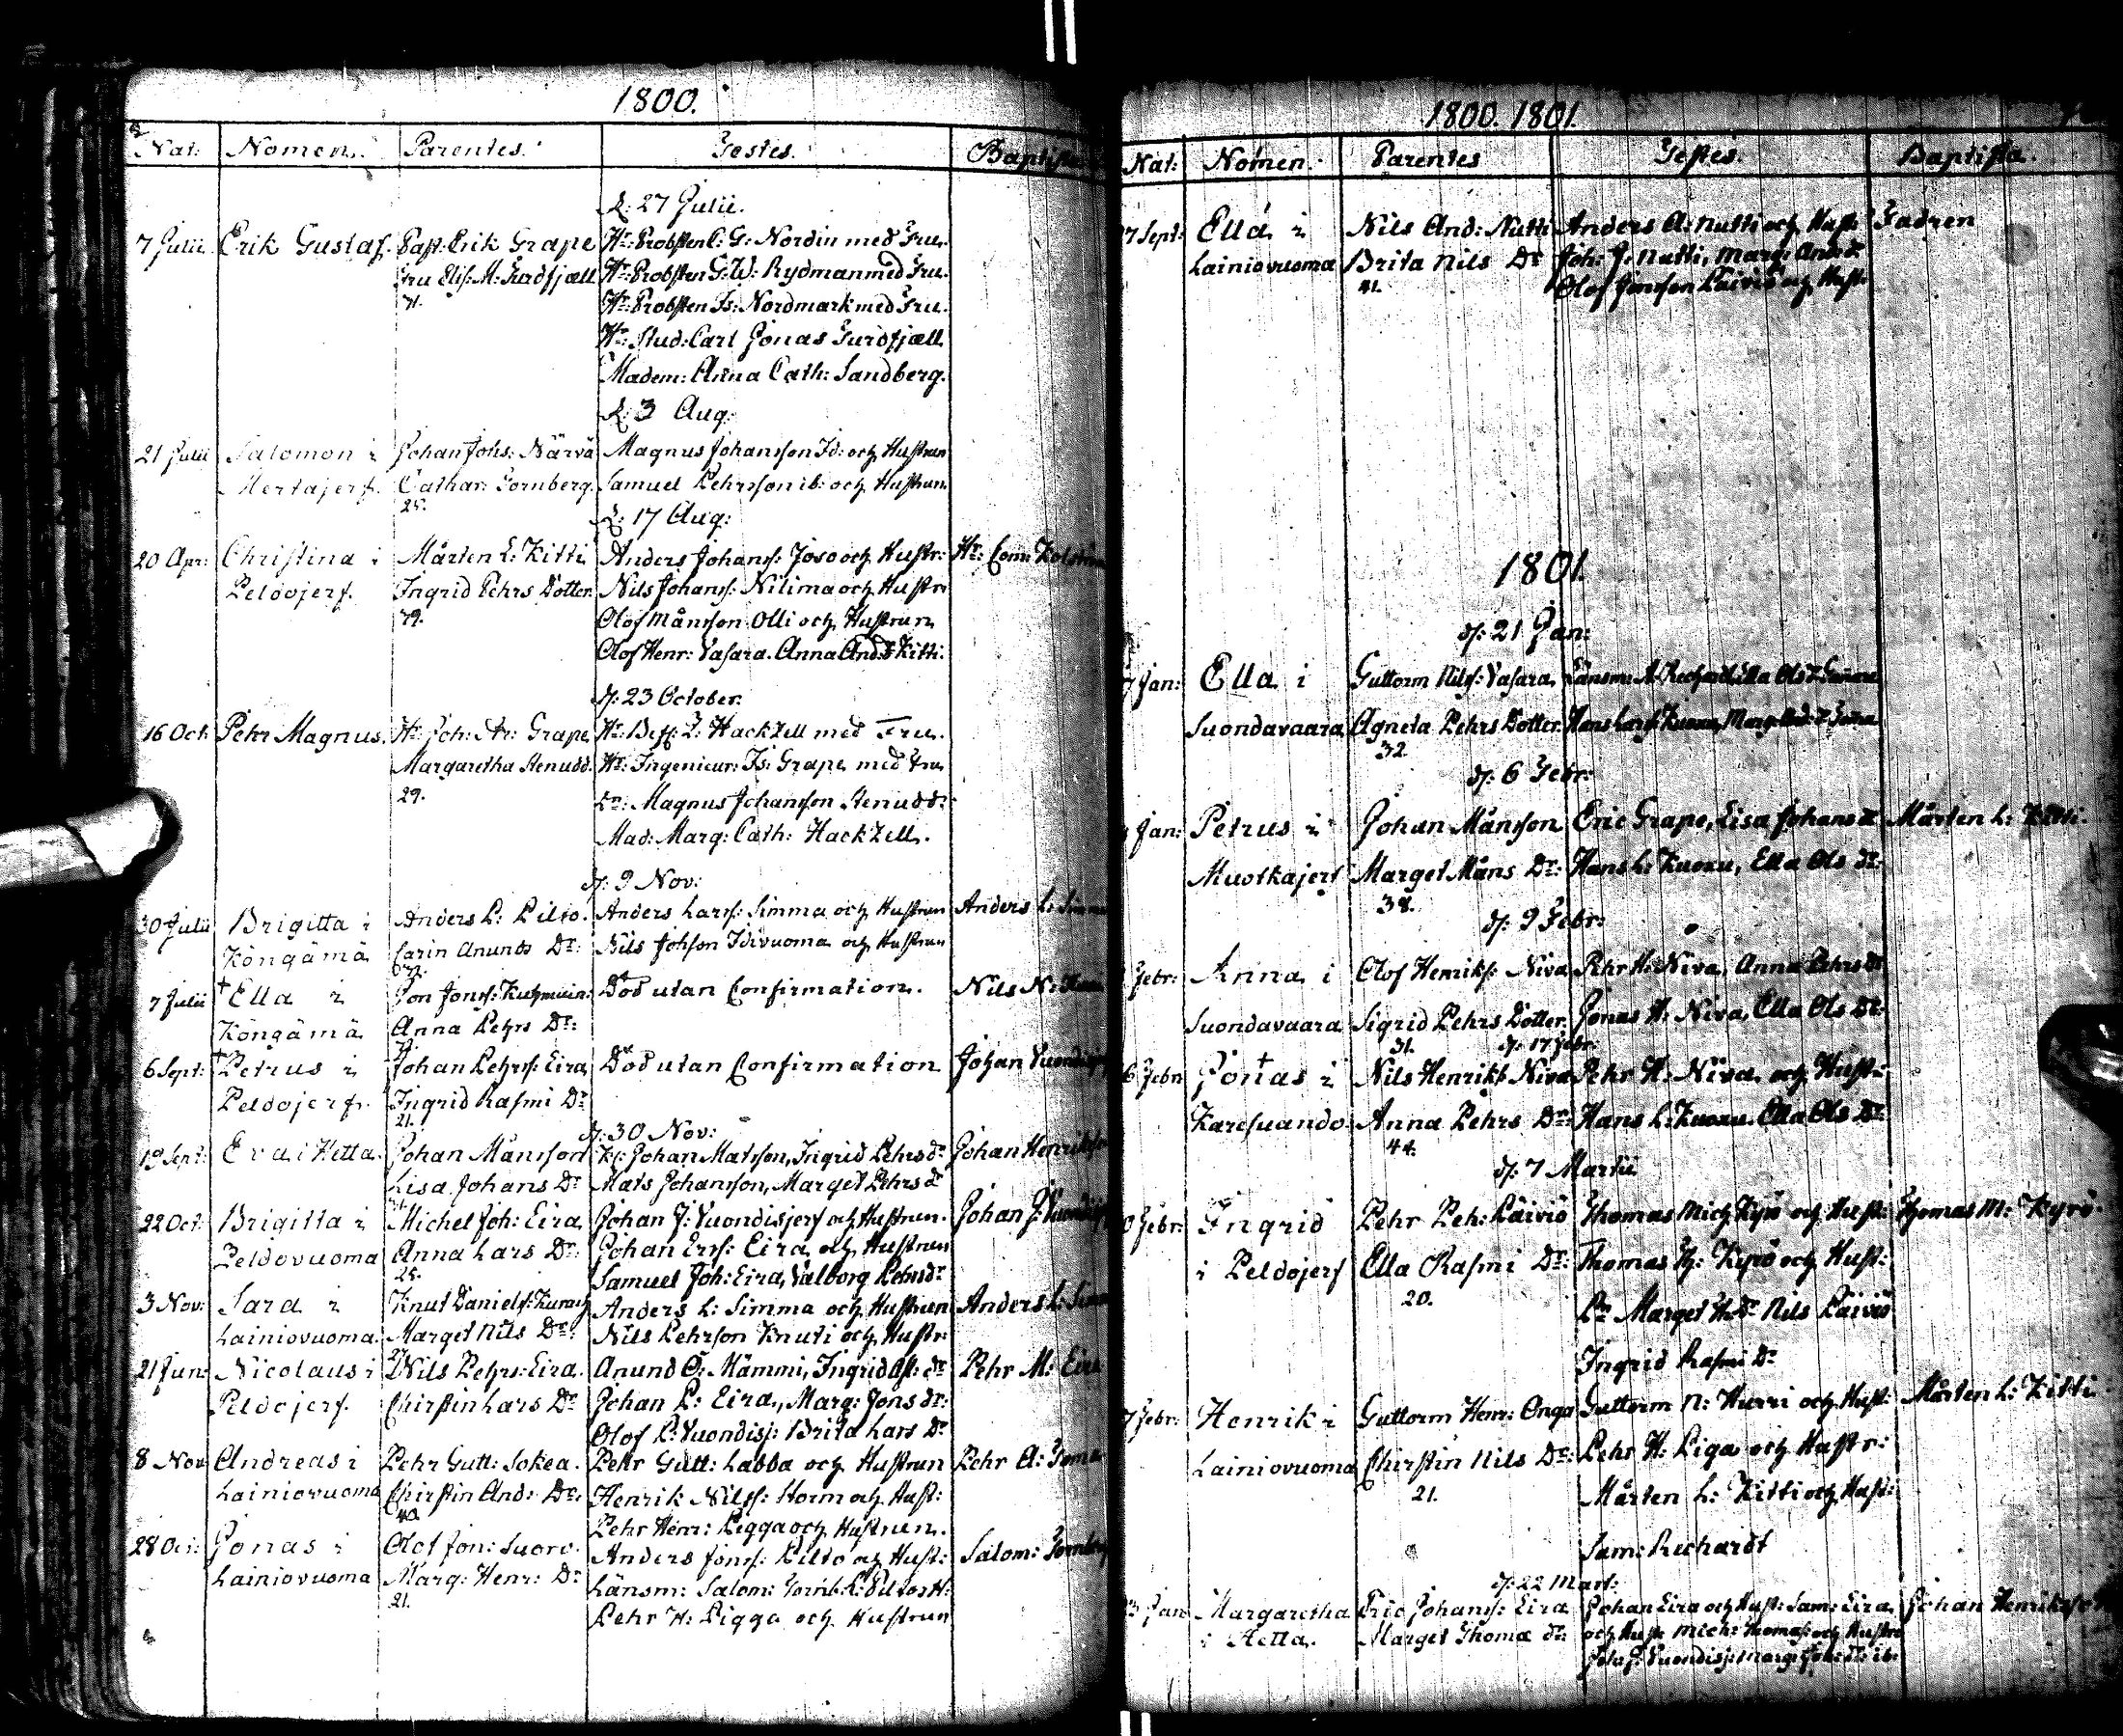 1800.
Nat: Nomen. Parentes. Testes. Baptista
d: 27 Julii.
7 Julii Erik Gustaf. Past: Erik Grape Hr: Probsten C: G: Nordin med Fru.
Fru Elis: M: Turdfjæll Hr: Probsten G: W: Rydman med Fru.
71. Hr: Probsten Is: Nordmark med Fru.
Hr: Stud: Carl Jonas Turdfjæll
Madem: Anna Cath: Sandberg.
d: 3 Aug:
21 Julii Salomon i Johan Johs: Närvä Magnus Johansson Id: och Hustrun
Mertajerf. Cathar: Fornberg. Samuel Pehrsson ib: och Hustrun
25.
d: 17 Aug:
20 Apr: Christina i Mårten L: Kitti Anders Johanss: Joso och Hustr: Hr: Com:
Peldojerf. Ingrid Pehrs Dotter. Nils Johanss: Nilima och Hustr:
79. Olof Månsson Olli och Hustrun
Olof Henr: Vasara. Anna And: dr Kitti.
d: 23 October.
16 Oct: Pehr Magnus. Hr: Joh: Ar: Grape Hr: Bef: Z: Hackzell med Fru.
Margaretha Stenudd. Hr: Ingenieur: Is: Grape med Fru
29. Dr: Magnus Johansson Stenudd:
Mad: Marg: Cath: Hackzell.
d: 9 Nov:
30 Julii Brigitta i Anders P: Pilto. Anders Larss: Simma och Hustrun Anders L: Simma
Köngämä Carin Anunds Dr: Nils Johsson Idivuoma och Hustrun
7 Julii † Ella i Jon Jonss: Död utan Confirmation. Nils N:
Köngämä Anna Pehrs Dr:
6 Sept: † Petrus i Johan Pehrss: Eira Död utan Confirmation Johan
Peldojerf. Ingrid Rasmi Dr
21.
d: 30 Nov:
19 Sept: Eva i Hetta. Johan Månsson Johan Matsson, Ingrid Pehrs dr Johan Henriksson
Lisa Johans Dr Mats Johansson, Marget Pehrs dr
22 Oct: Brigitta i Michel Joh: Eira Johan J: Vuondisjerf och Hustrun. Johan J:
Peldovuoma Anna Lars Dr: Johan Erss: Eira och Hustrun
25. Samuel Joh: Eira, Valborg Pehrs dr
3 Nov: Sara i Knut Daniels: Anders L: Simma och Hustrun Anders L:
Lainiovuoma. Marget Nils Dr: Nils Pehrsson Knuti och Hustr:
21 Jun: Nicolaus i Nils Pehrs: Eira. Anund O: Mämmi, Ingrid dr Pehr M: Eira
Peldojerf. Chirstin Lars Dr Johan P: Eira, Marg: Jons dr:
Olof P: Vuondisj: Brita Lars Dr
8 Nov Andreas i Pehr Gutt: Sokea. Pehr Gutt: Labba och Hustrun Pehr A:
Lainiovuoma Chirstin And: Dr: Henrik Nilss: Storm och Hust:
40. Pehr Henr: Pigga och Hustrun.
28 Oct: Jonas i Olof Jon: Suorv. Anders Jonss: Pilto och Hust: Salom:
Lainiovuoma Marg: Henr: Dr Länsm: Salom:
21. Pehr H: Pigga och Hustrun
1800. 1801.
Nat: Nomen. Parentes Testes. Baptista.
7 Sept: Ella i Nils And: Nutti Anders A: Nutti och Hust: Fadren
Lainiovuoma Brita Nils Dr Joh: J: Nutti, Marg: And: dr
41. Olof Jonsson Päiviö och Hust:
1801.
d: 21 Jan:
7 Jan: Ella i Guttorm Nilss: Vasara. Länsm: Ella Ols
Suondavaara Agneta Pehrs Dotter. Hans Larss: Kuoxu, Marg:
32.
d: 6 Febr:
Jan: Petrus i Johan Månsson Eric Grape, Lisa Johans dr Mårten L: Kitti.
Muotkajerf Marget Måns Dr: Hans L: Kuoxu, Ella Ols dr:
38.
d: 9 Febr:
Febr: Anna i Olof Henriks: Niva Pehr H: Niva, Anna Pehrs dr
Suondavaara Sigrid Pehrs Dotter. Jonas H: Niva, Ella Ols Dr:
31. d: 17 Febr:
6 Febr Jonas i † Nils Henriks: Niva Pehr H: Niva och Hust:
Karesuando Anna Pehrs Dr: Hans L: Kuoxu. Ella Ols Dr
44.
d: 7 Martii
Febr: Ingrid Pehr Peh: Päiviö Thomas Mich: Kyrö och Hust: Thomas M: Kyrö.
i Peldojerf Ella Rasmi Dr: Thomas Th: Kyrö och Hust:
20. Marget Th: Dr Nils Päiviö
Ingrid Rasmi Dr
7 Febr: Henrik i Guttorm Henr: Onga Guttorm N: Hurri och Hust: Mårten L: Kitti
Lainiovuoma Chirstin Nils Dr: Pehr H: Piga och Hustr:
21. Mårten L: Kitti och Hust:
Sam: Rechardt
d: 22 Mart:
Jan Margaretha Eric Johans: Eira Johan Eira och Hust: Sam: Eira Johan Henriksson
i Hetta. Marget Thomæ dr: och Hust: Mich: Thomas: och Hustru
Vuondisj: Marg: Joh: dr: ib: